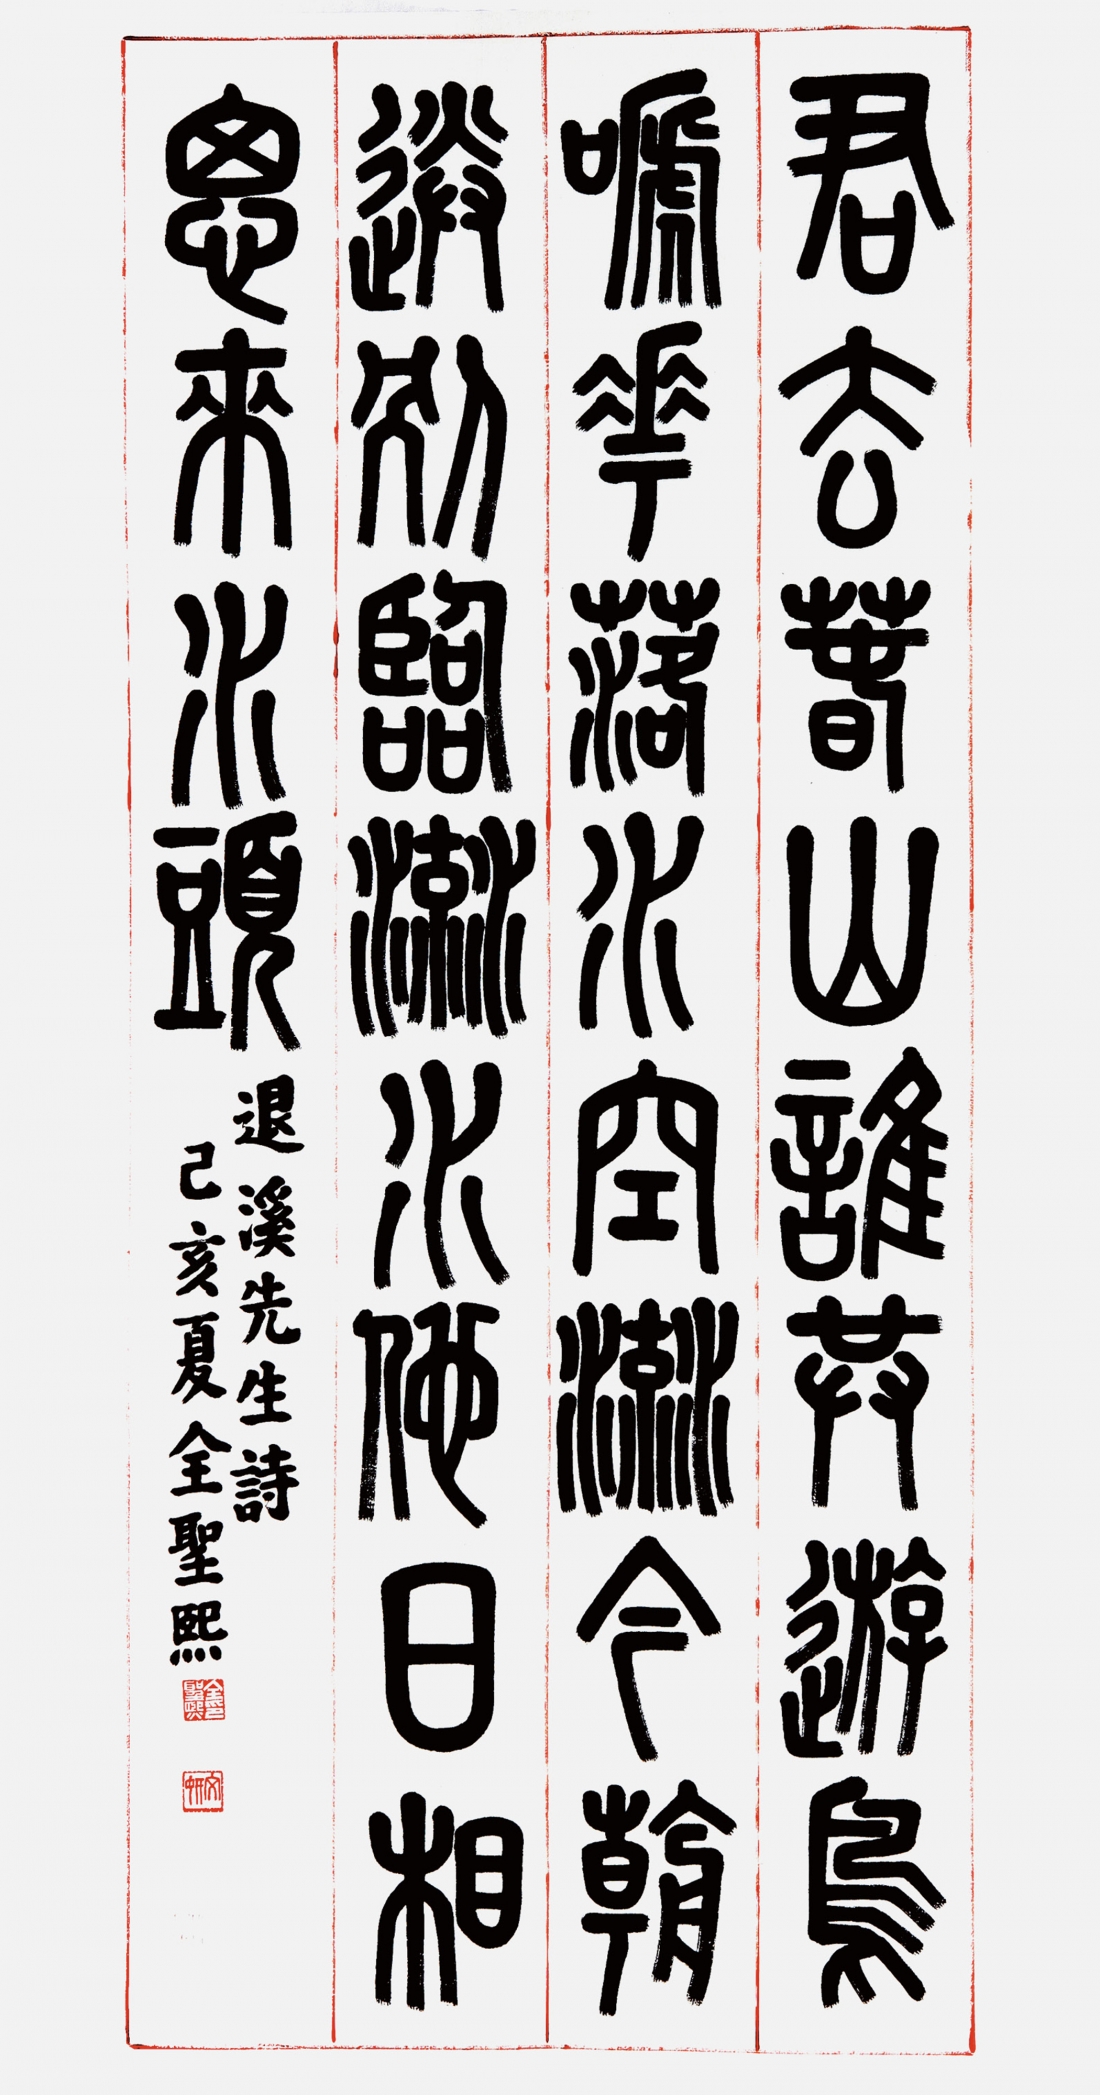 君去春山誰共遊鳥
嗁花落水空流今朝
送別臨流水他日相
思來水頭
退溪先生詩
己亥夏全聖熙